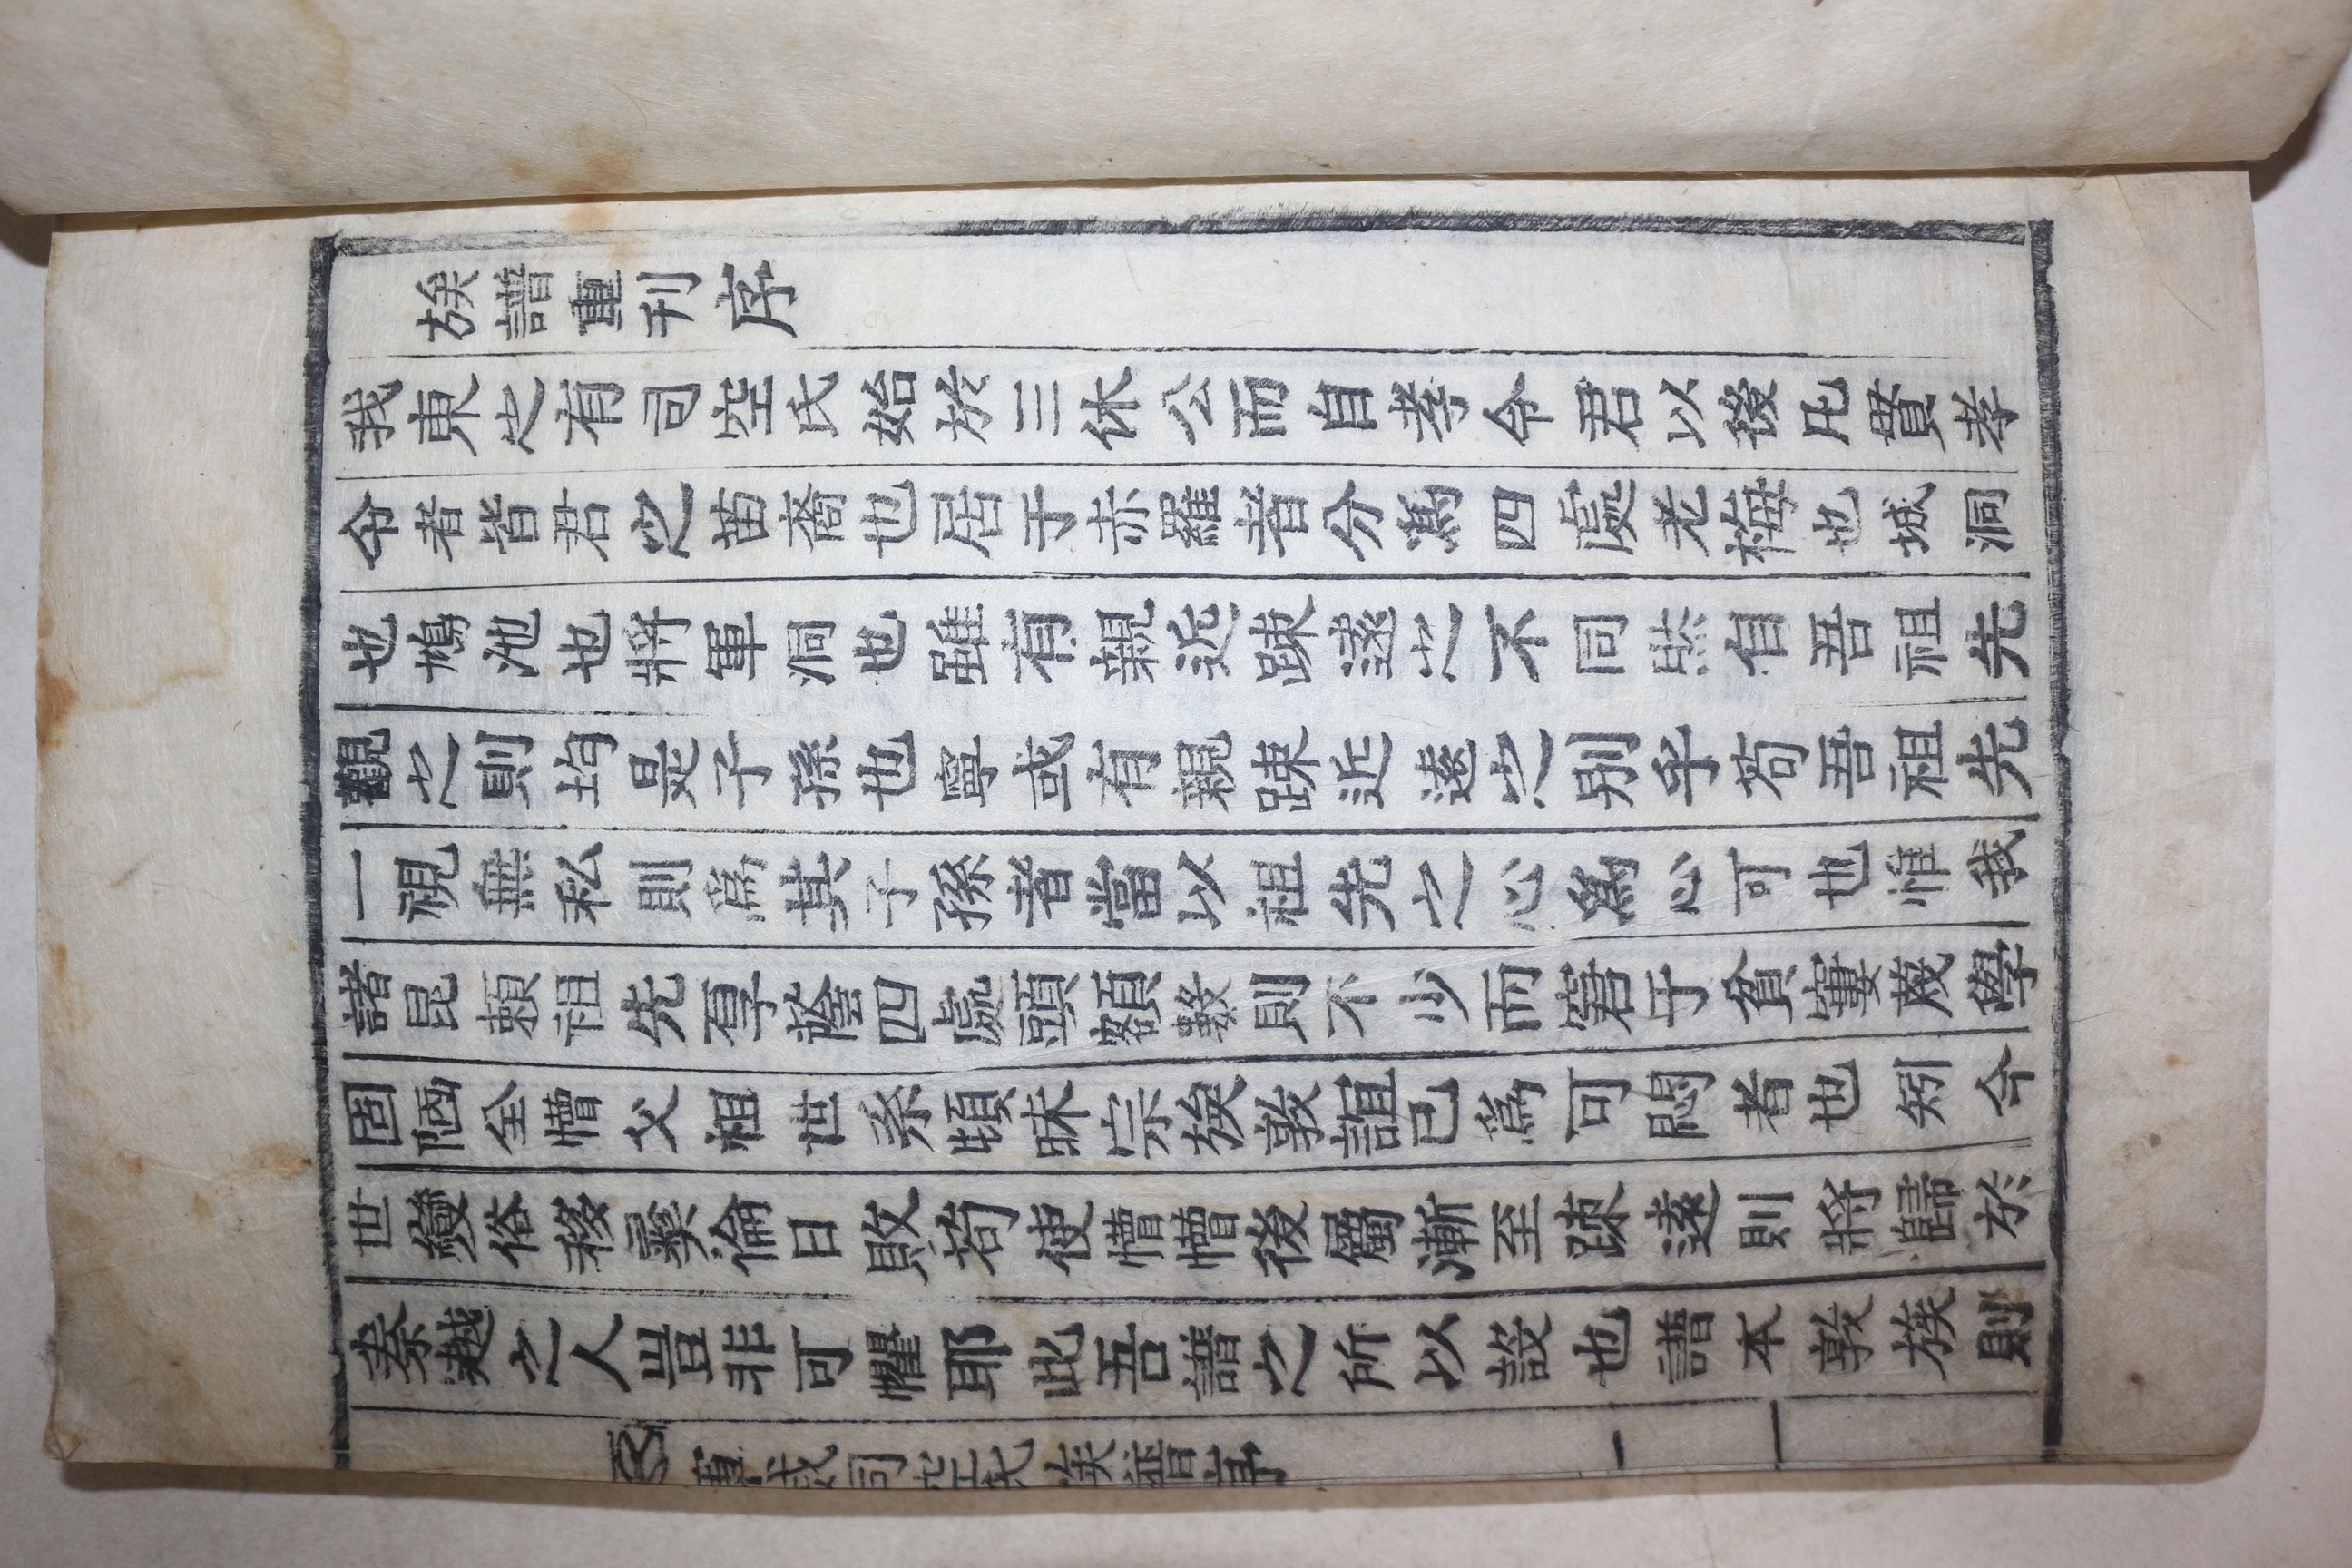 族譜重刊序
我東之有司空氏始於三休公而自孝令君以後凡貫孝
令者皆君之苗裔也居于赤羅者分爲四處老梅也城洞
也鳩池也將軍洞也雖有親近踈遠之不同然自吾祖先
觀之則均是子孫也寧或有親踈近遠之別乎苟吾祖先
一視無私則爲其子孫者當以祖先之心爲心可也惟我
諸昆賴祖先孚蔭四處頭額數則不少而窘于貧窶蔑學
固陋全懵父祖世系頓昧宗族敦誼已爲可悶者也矧今
世變俗移彛倫日敗苟使懵懵後屬漸至踈遠則將歸於
秦越之人豈非可懼耶此吾譜之所以設也譜本敦族則
司空氏族譜